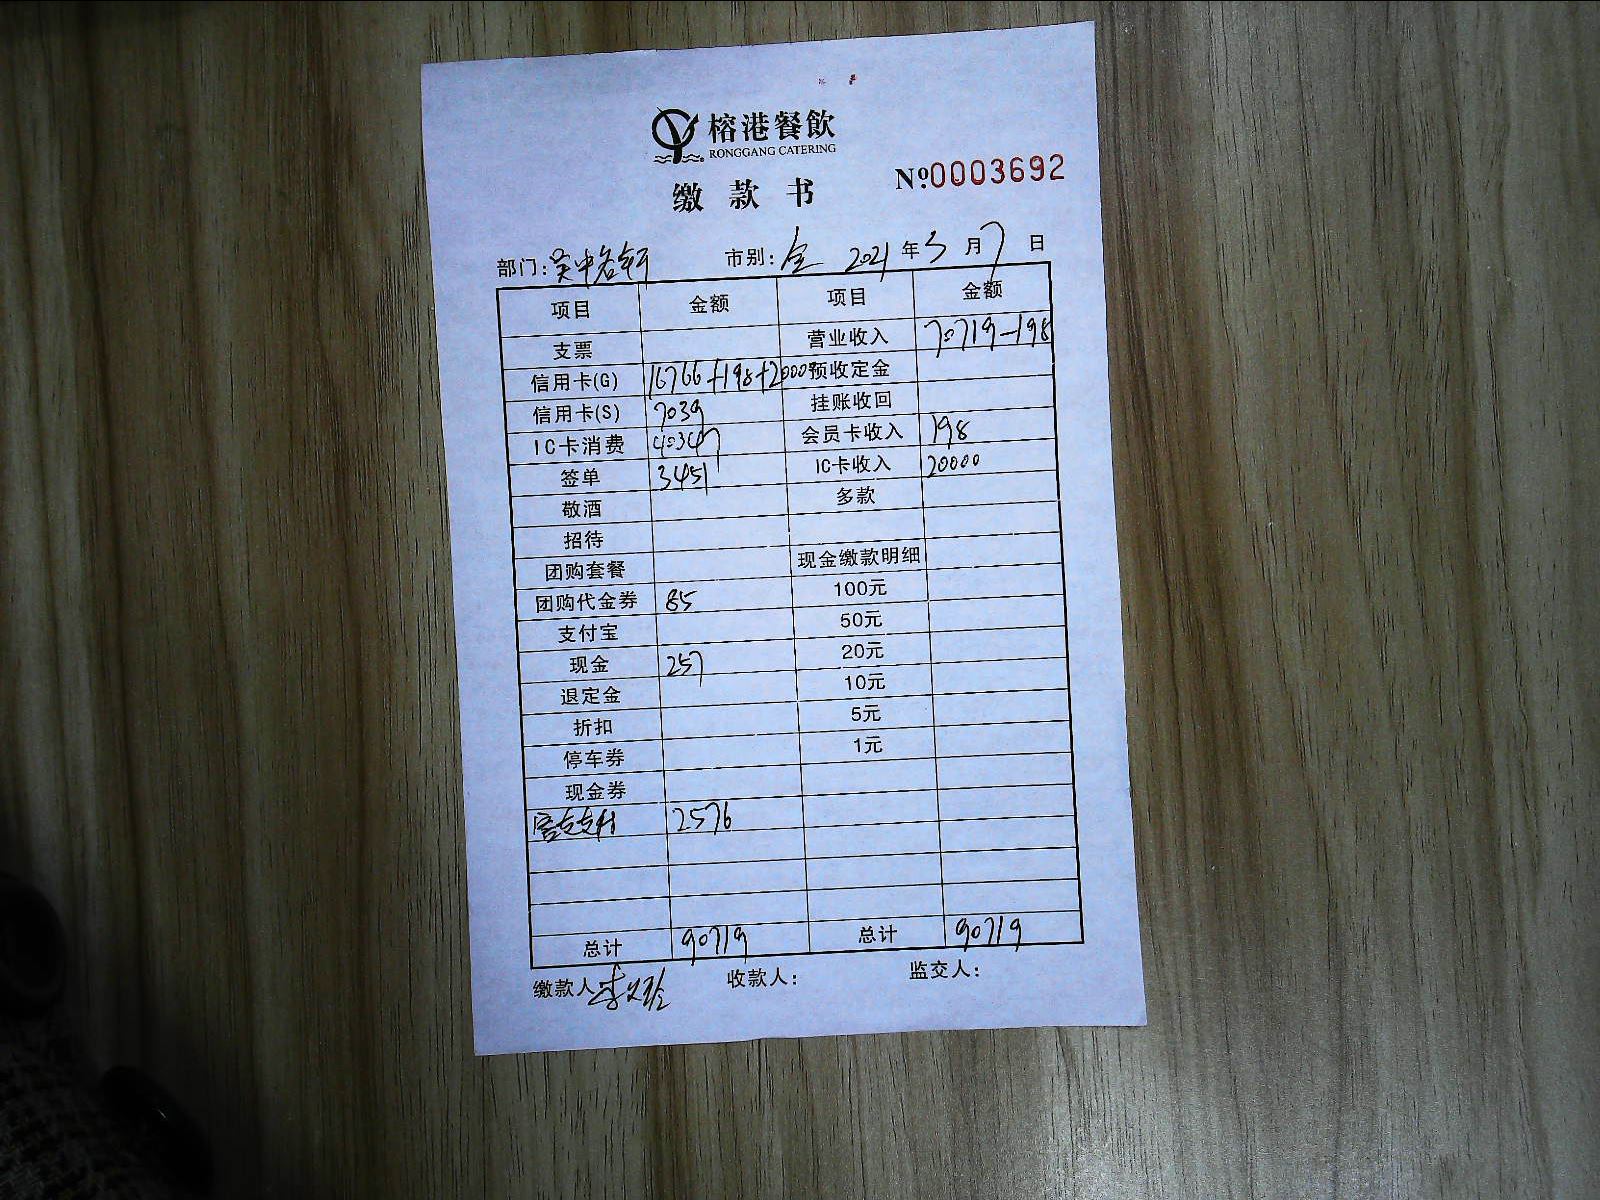 榕港餐飲
RONGGANG CATERING
缴款书
№0003692
部门:吴中名轩 市别:全 2021年3月7日
项目 金额 项目 金额
支票 营业收入 70719-198
信用卡(G) 16766+198+20000 预收定金
信用卡(S) 7039 挂账收回
IC卡消费 40347 会员卡收入 198
签单 3451 IC卡收入 20000
敬酒 多款
招待
团购套餐 现金缴款明细
团购代金券 85 100元
支付宝 50元
现金 257 20元
退定金 10元
折扣 5元
停车券 1元
现金券
2576
总计 90719 总计 90719
缴款人 收款人: 监交人: